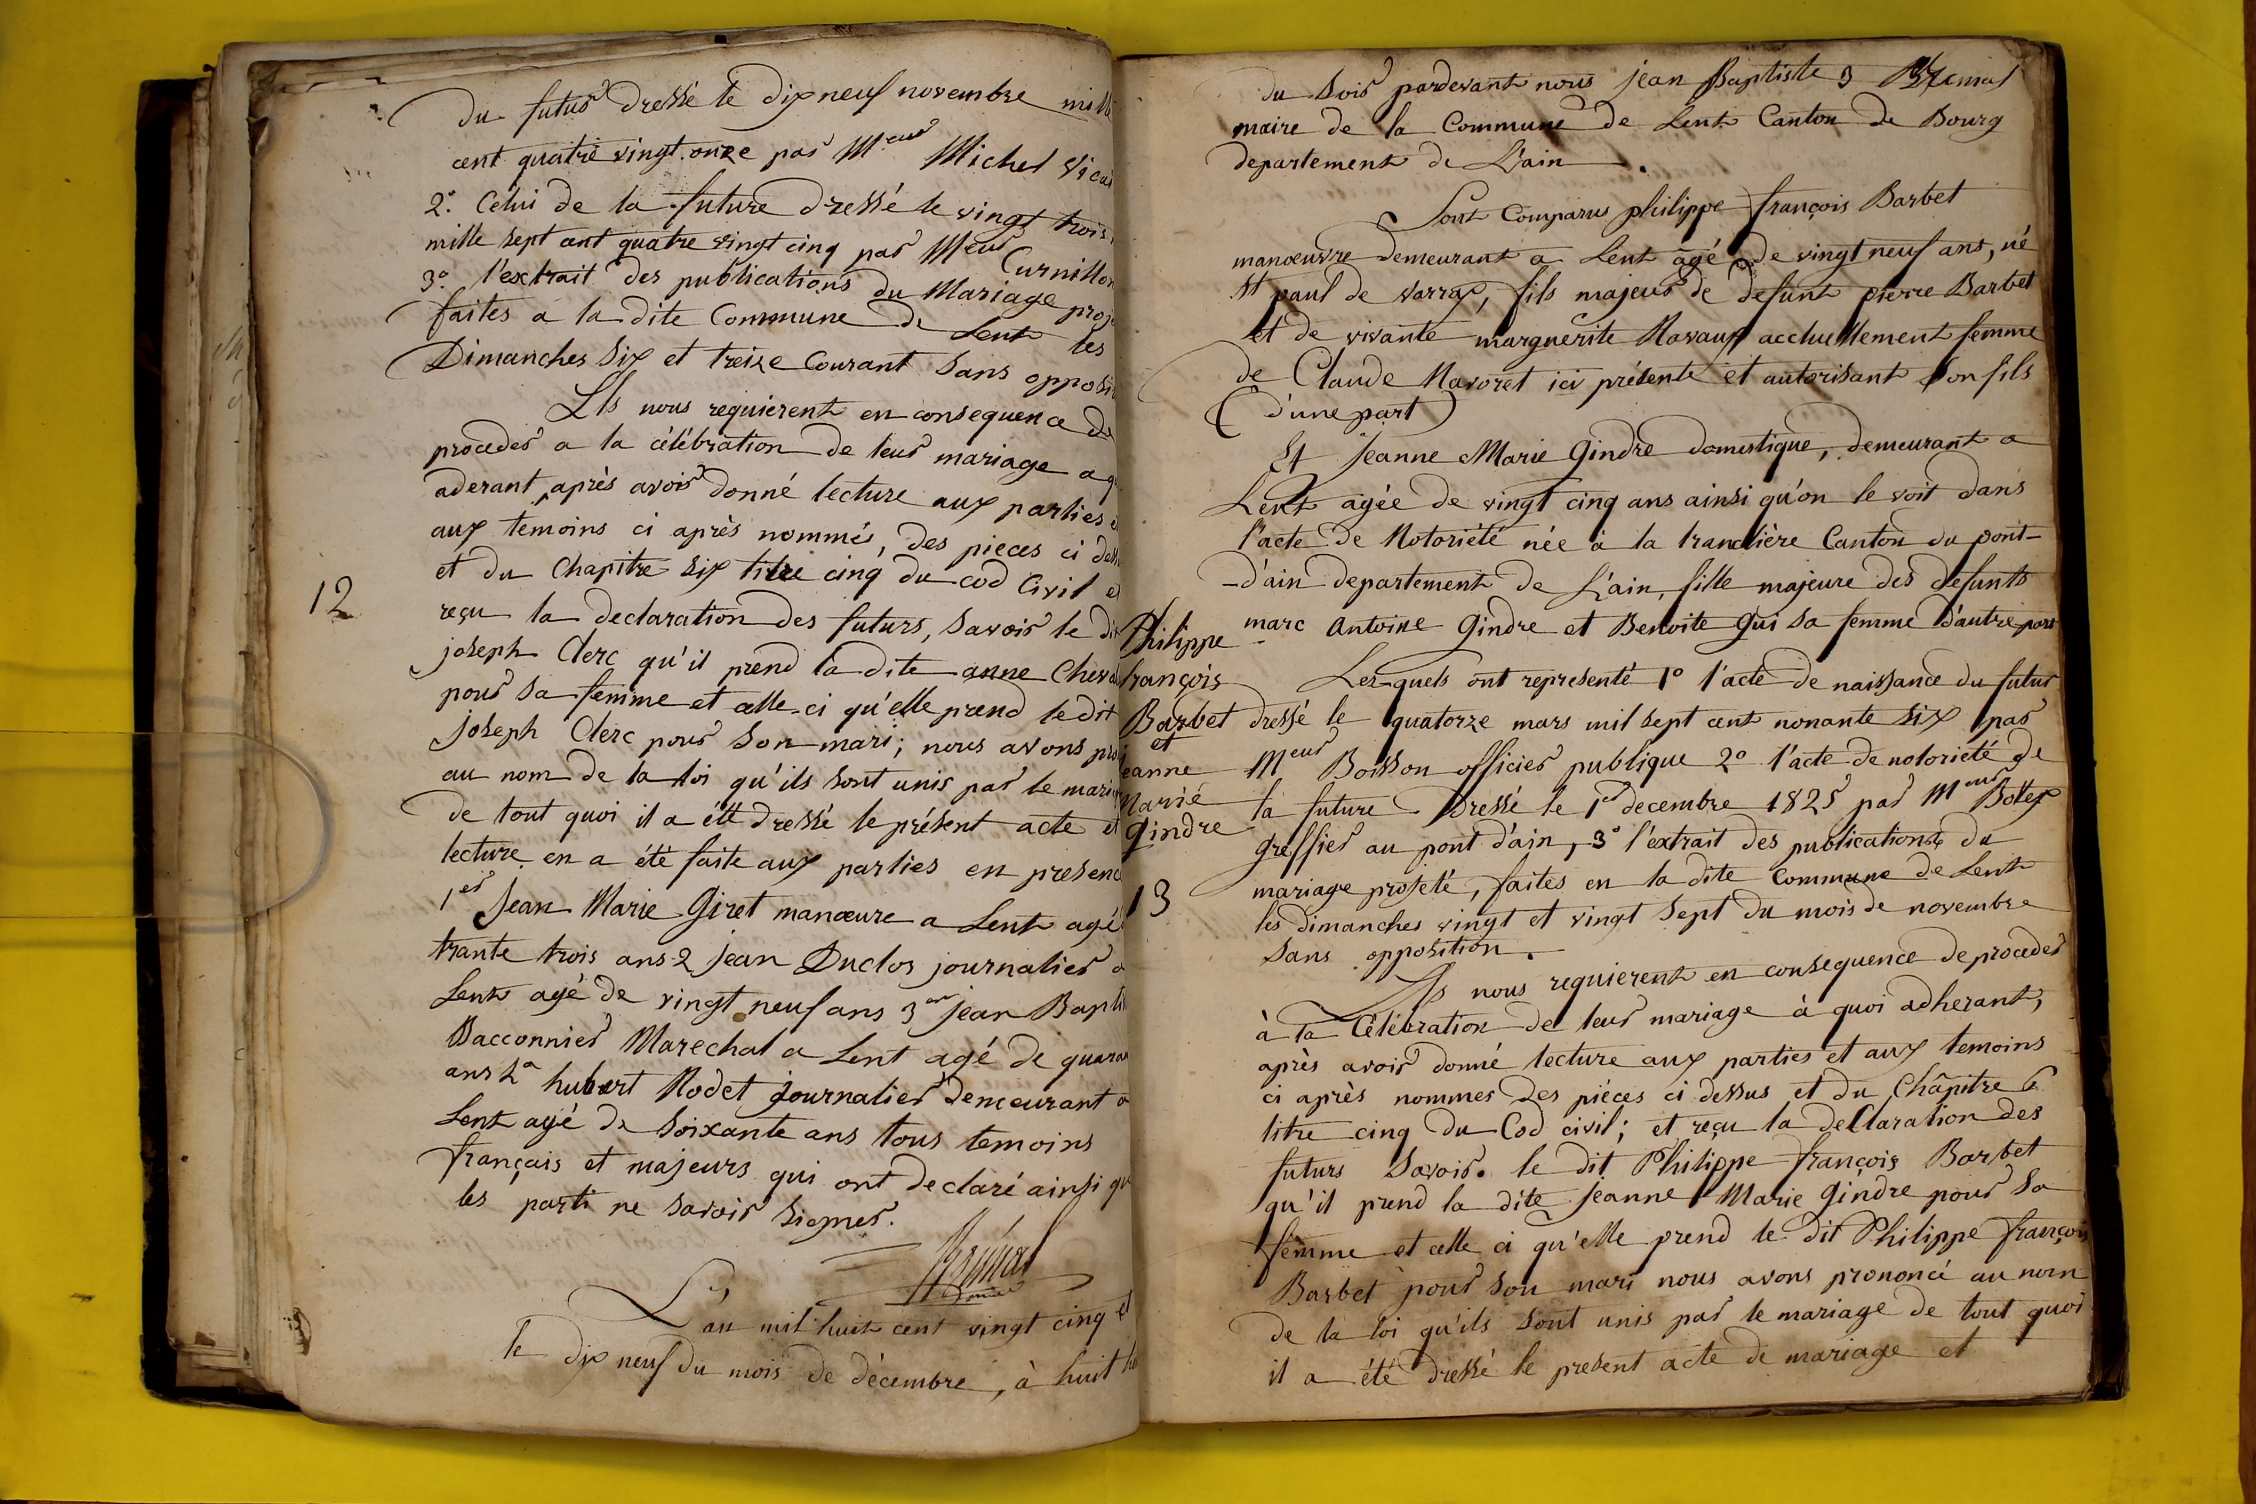 du futur dressé le dix neuf novembre mill
cent quatre vingt onze par Meur Michel Vicai
2°. Celui de la future dressé le vingt trois
mille sept cent quatre vingt cinq par Meur Curnillon
3° l'extrait des publications du Mariage proje
faites a la dite Commune de Lent les
Dimanches Six et treize Courant Sans opposi
Ils nous requierent en consequence de
proceder a la célébration de leur mariage a q
aderant, après avoir donné lecture aux parties e
aux temoins ci après nommés, des pieces ci dess
et du Chapitre Six titre cinq du cod Civil e
12
reçu la declaration des futurs, Savoir le dit
joseph Clerc qu'il prend la dite anne Cheva
pour sa femme et celle-ci qu'elle prend ledit
joseph Clerc pour Son mari; nous avons pro
au nom de la loi qu'ils Sont unis par le maria
de tout quoi il a été dressé le présent acte et
lecture en a été faite aux parties en presenc
1er Jean Marie Giret manœuvre a Lent agé
trante trois ans 2 jean Duclos journalier a
Lent agé de vingt neuf ans 3 jean Bapti
Bacconnier Marechal a Lent agé de quaran
ans hubert Rodet journalier demeurant a
Lent agé de Soixante ans tous temoins
français et majeurs qui ont declaré ainsi qu
les parti ne savoir Signer.
L'an mil huit cent vingt cinq et
le dix neuf du mois de décembre, à huit
du Soir pardevant nous jean Baptiste
maire de la Commune de Lent Canton de Bourg
departement de L'ain.
Sont Comparus philippe françois Barbet
manœuvre demeurant a Lent agé de vingt neuf ans, né
St paul de varrax, fils majeur de defunt pierre Barbet
et de vivante marguerite Ravaux acctuellement femme
de Claude Mavoret ici présente et autorisant Son fils
(d'une part)
Et Jeanne Marie Gindre domestique, demeurant a
Lent agée de vingt cinq ans ainsi qu'on le voit dans
l'acte de Notoriété née à la tranclière Canton du pont-
-d'ain departement de L'ain, fille majeure des defunts
marc Antoine Gindre et Benoite Gui Sa femme d'autre part
Philippe
françois
Barbet
et
jeanne
Marie
Gindre
13
Lesquels ont representé 1° l'acte de naissance du futur
dressé le quatorze mars mil Sept cent nonante Six par
Meur Boisson officier publique 2° l'acte de notorieté de
la future Dressé le 1er decembre 1825 par Meur
greffier au pont d'ain, 3° l'extrait des publications du
mariage projeté, faites en la dite Commune de Lent
les dimanches vingt et vingt Sept du mois de novembre
Sans opposition.
Ils nous requierent en consequence de proceder
à la Célébration de leur mariage à quoi adherant,
après avoir donné lecture aux parties et aux temoins
ci après nommes des pièces ci dessus et du Châpitre 6
titre cinq du Cod civil; et reçu la declaration des
futurs Savoir. le dit Philippe françois Barbet
qu'il prend la dite Jeanne Marie Gindre pour Sa
femme et celle ci qu'elle prend le dit Philippe françois
Barbet pour Son mari nous avons prononcé au nom
de la loi qu'ils Sont unis par le mariage de tout quoi
il a été dressé le present acte de mariage et